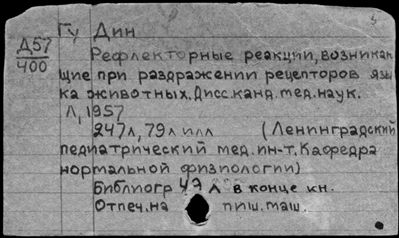 Гу Дин
Д57
400
Рефлекторные реакции, возникаю
щие при раздражении рецепторов язы
ка животных. Дисс. канд. мед. наук.
Л, 1957
247 л, 79 л илл (Ленинградский
педиатрический мед. ин-т. Кафедра
нормальной физиологии)
Библиогр 47 л в конце кн.
Отпеч. на пиш. маш.